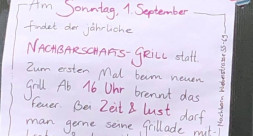 Am Sonntag, 1. September
findet der jährliche
NACHBARSCHAFTS-GRILL statt.
Zum ersten Mal beim neuen
Grill Ab 16 Uhr brennt das
Feuer. Bei Zeit & Lust darf
man gerne seine Grillade mit-